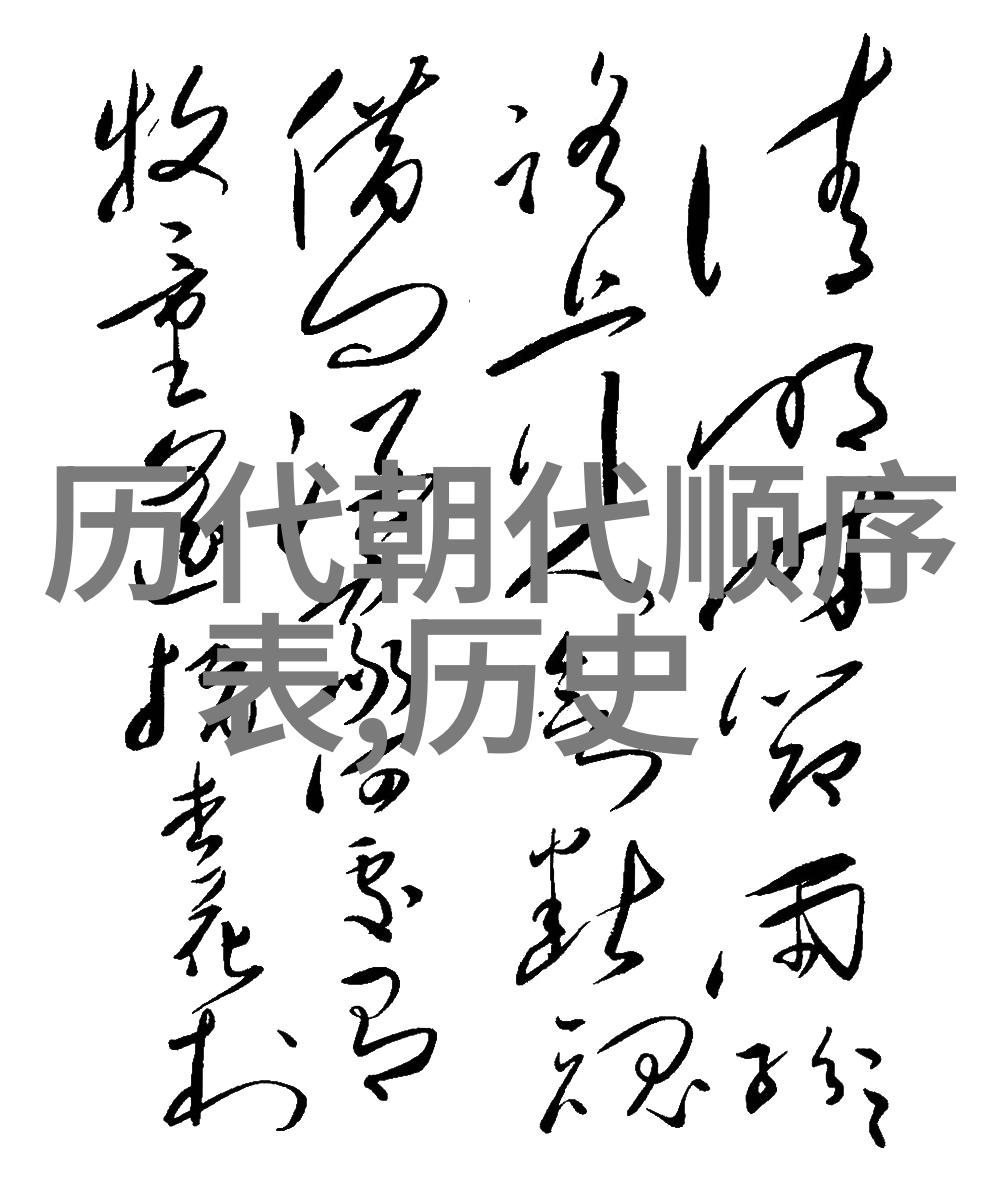 清明時節雨紛紛
路上行人欲斷魂
借問酒家何處有
牧童遥指杏花村
历代朝代顺序
表,历史